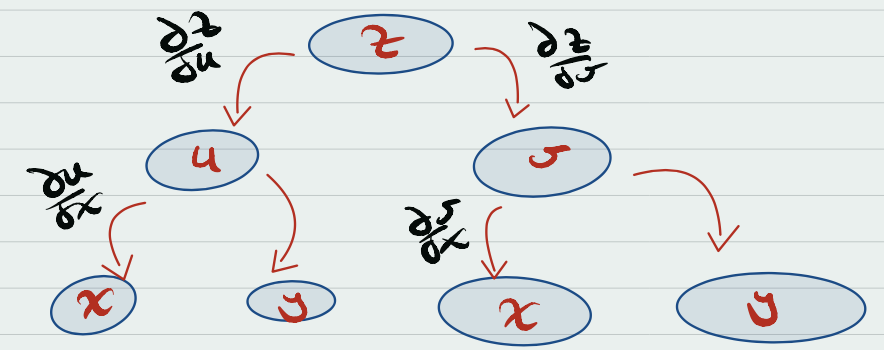 ∂z/∂u z ∂z/∂v
u v
∂u/∂x ∂v/∂x
x y x y